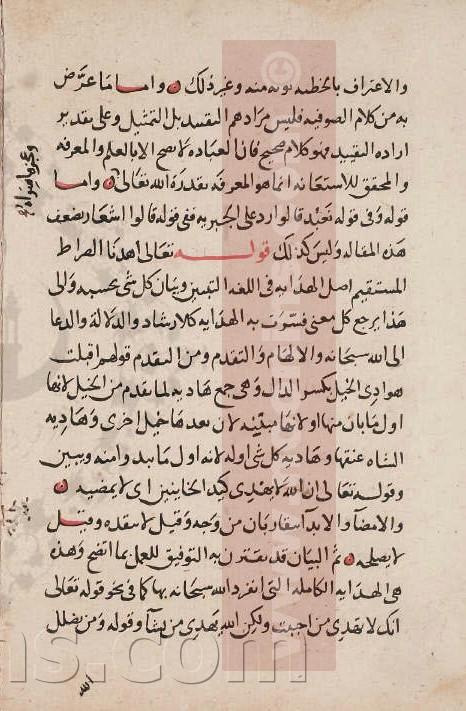 والاعتراف بالخطيه توبه منه وغير ذلك ۞ واما ما عرّض
به من كلام الصوفيه فليس مرادهم التقييد بل التمثيل وعلى تقدير
اراده التقييد فهو كلام صحيح فان العباده لا تصح الا بالعلم والمعرفه
والمحقق للاستعانه انما هو المعرفه بقدرة الله تعالى ۞ واما
قوله وفى قوله نعبد قالوا رد على الجبريه ففى قوله قالوا اشعار بضعف
هذه المقاله وليس كذلك قوله تعالى اهدنا الصراط
المستقيم اصل الهدايه فى اللغه التبيين وبيان كل شى بحسبه والى
هذا يرجع كل معنى فسرت به الهدايه كالارشاد والدلالة والدعا
الى الله سبحانه والالهام والتقدم ومن التقدم قولهم اقبلت
هوادى الخيل بكسر الدال وهى جمع هاديه لما تقدم من الخيل لانها
اول ما بان منها او لانها مبيّنه لان بعدها خيل اخرى وهاديه
الشاه عنقها وهاديه كل شى اوله لانه اول ما يبدو منه ويبين
وقوله تعالى ان الله لا يهدى كيد الخاينين اى لا يمضيه ۞
والامضآ والابدآ متقاربان من وجه وقيل لا ينفده وقيل
لا يصلحه ۞ ثم البيان قد يقترن به التوفيق للعمل بما اتضح وهذه
هى الهدايه الكامله التى انفرد الله سبحانه بها كما فى نحو قوله تعالى
انك لا تهدى من احببت ولكن الله يهدى من يشآ وقوله ومن يضلل
الله
ns.com